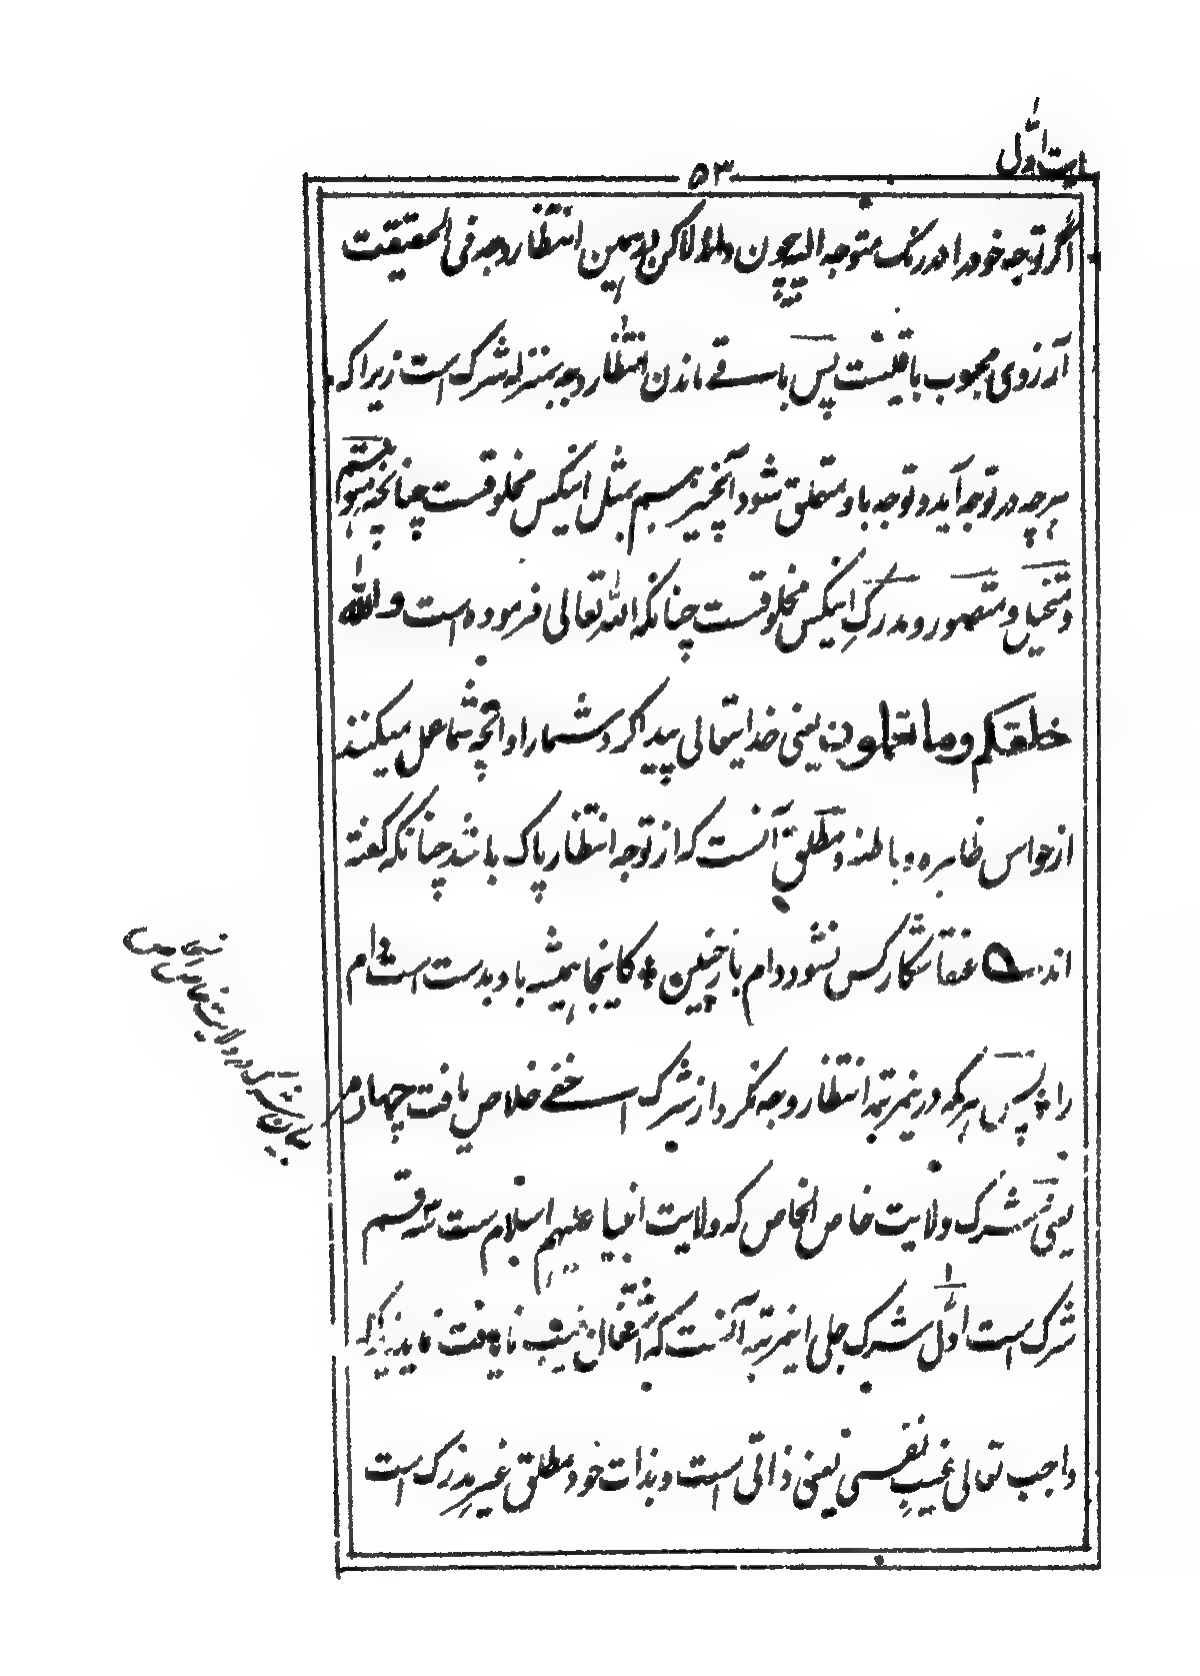 ایت اوّل
۵۳
اگر توجه خود را در رنگ متوجه الیه بیچون داند لاکن بهمین انتظار و جد فی الحقیقت
آرزوی محبوب باقیست پس باقے ماندن انتظار وجد بمنزله شرک است زیرا که
هرچه در توجه آید و توجه باو متعلق شود آنچیز هم بمثل اینکس مخلوقست چنانچه متوهم
و متخیل و متصور و مدرک اینکس مخلوقست چنانکه الله تعالی فرموده است والله
خلقکم وما تعملون یعنی خدایتعالی پیدا کرد شما را و آنچه شما عمل میکنند
از حواس ظاهره و باطنه و مطلق آنست که از توجه انتظار پاک باشد چنانکه گفته
اند عنقا شکار کس نشود دام باز چین * کاینجا همیشه باد بدست است دام
را * پس هرکه درینمرتبه انتظار وجد نکرد از شرک اخفے خلاص یافت چهارم
یعنی شرک ولایت خاص الخاص که ولایت انبیا علیهم السلام ست سه قسم
شرک است اوّل شرک جلی اینمرتبه آنست که اشغال غیب نایافت ورزد زیراکه
واجب تعالی غیب نفسی یعنی ذاتی است و بذات خود مطلق غیر مدرک است
بیان شرک در ولایت خاص الخاص